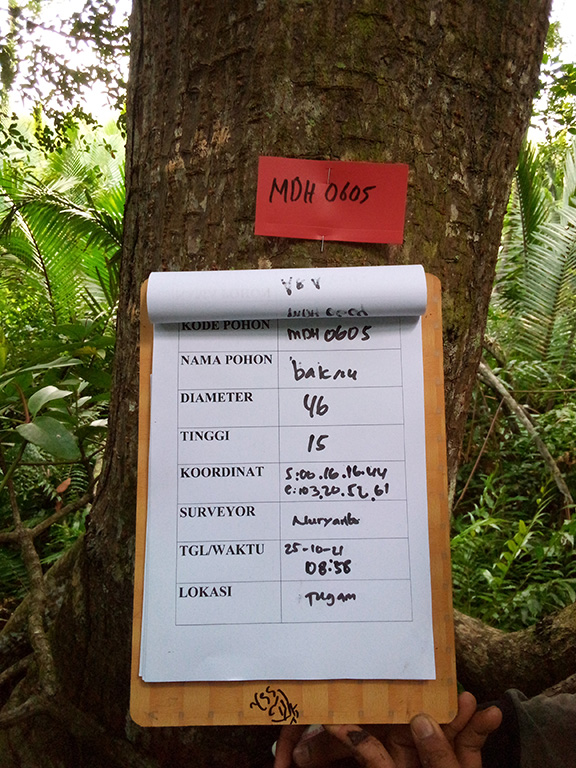 MDH 0605
KODE POHON MDH 0605
NAMA POHON bakau
DIAMETER 46
TINGGI 15
KOORDINAT S:00.16.16.44
e:103,20.52,61
SURVEYOR Nuryanto
TGL/WAKTU 25-10-21
08:58
LOKASI Tugam